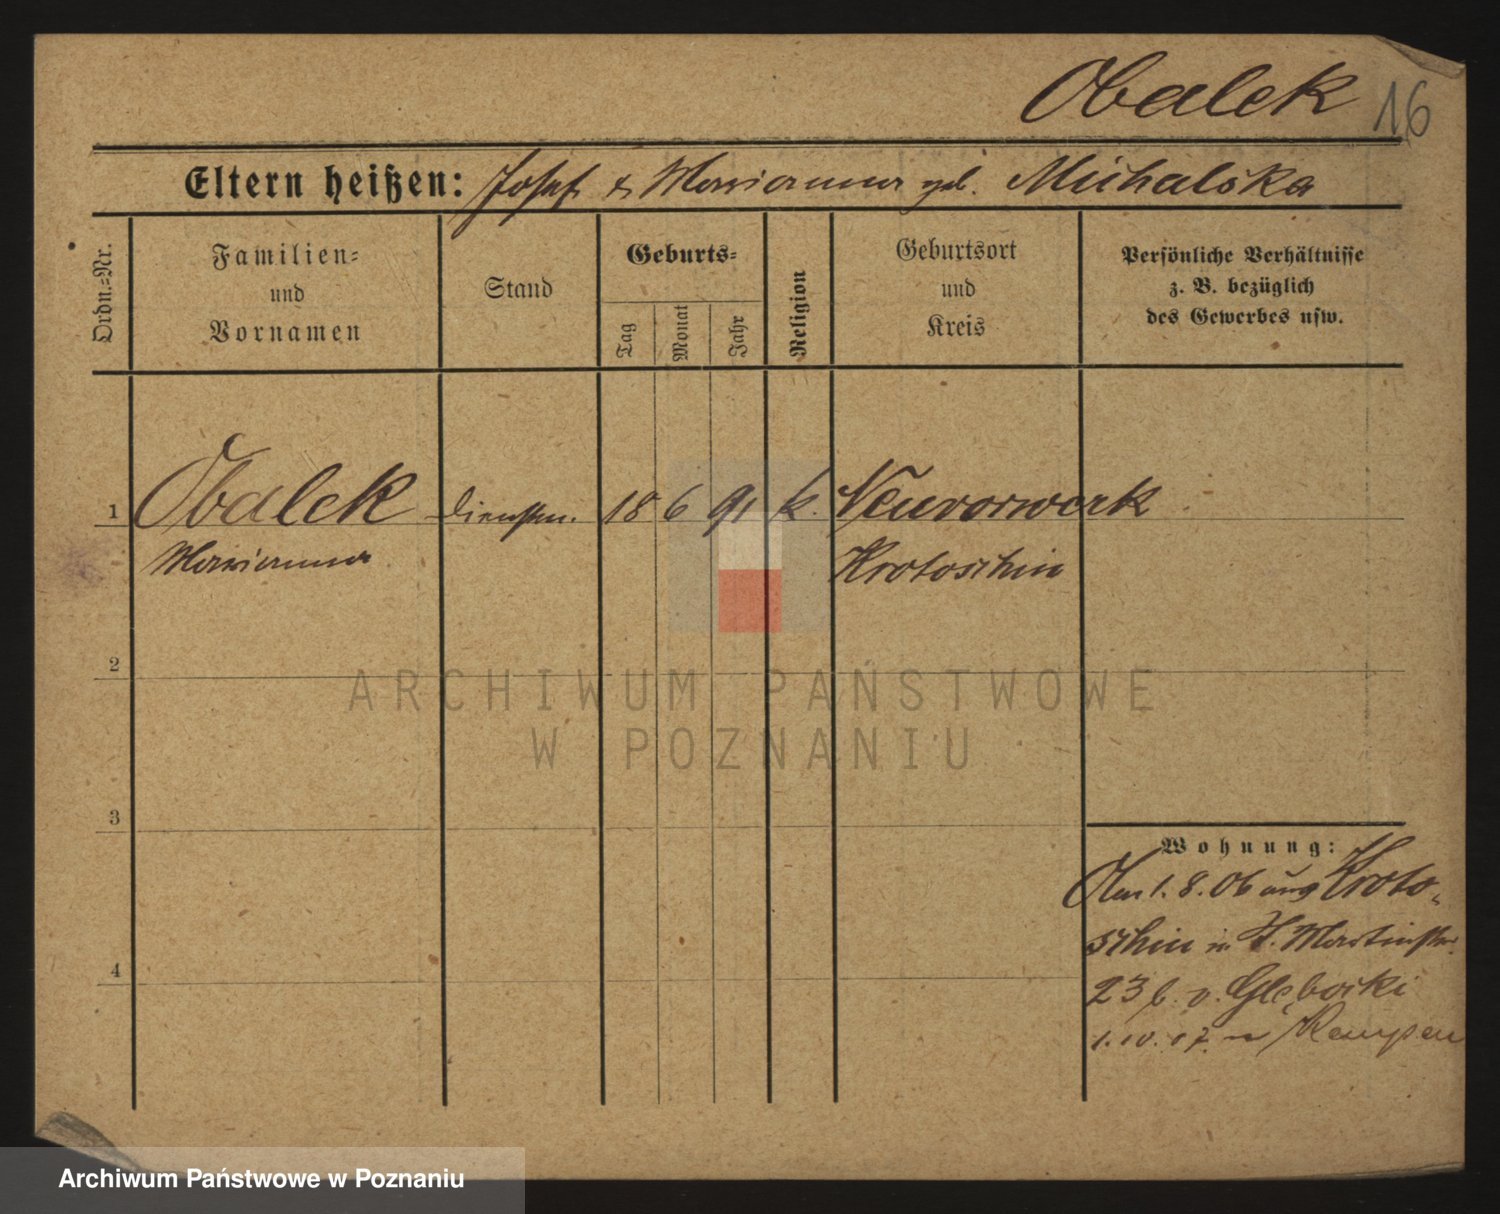 Obalek 16
Eltern heißen: Josef & Marianna geb. Michalska
Ordn.=Nr.
Familien=
und
Vornamen
Stand
Geburts=
Tag
Monat
Jahr
Religion
Geburtsort
und
Kreis
Persönliche Verhältnisse
z. B. bezüglich
des Gewerbes usw.
1 Obalek Dienstm. 18 6 91 k. Neuvorwerk
Marianna Krotoschin
2
ARCHIWUM PAŃSTWOWE
W POZNANIU
3
Wohnung:
Am 1. 8. 06 aus Kroto-
schin in St. Martinstr.
23 b. v. Głębocki
1. 10. 07 n Kempen
4
Archiwum Państwowe w Poznaniu